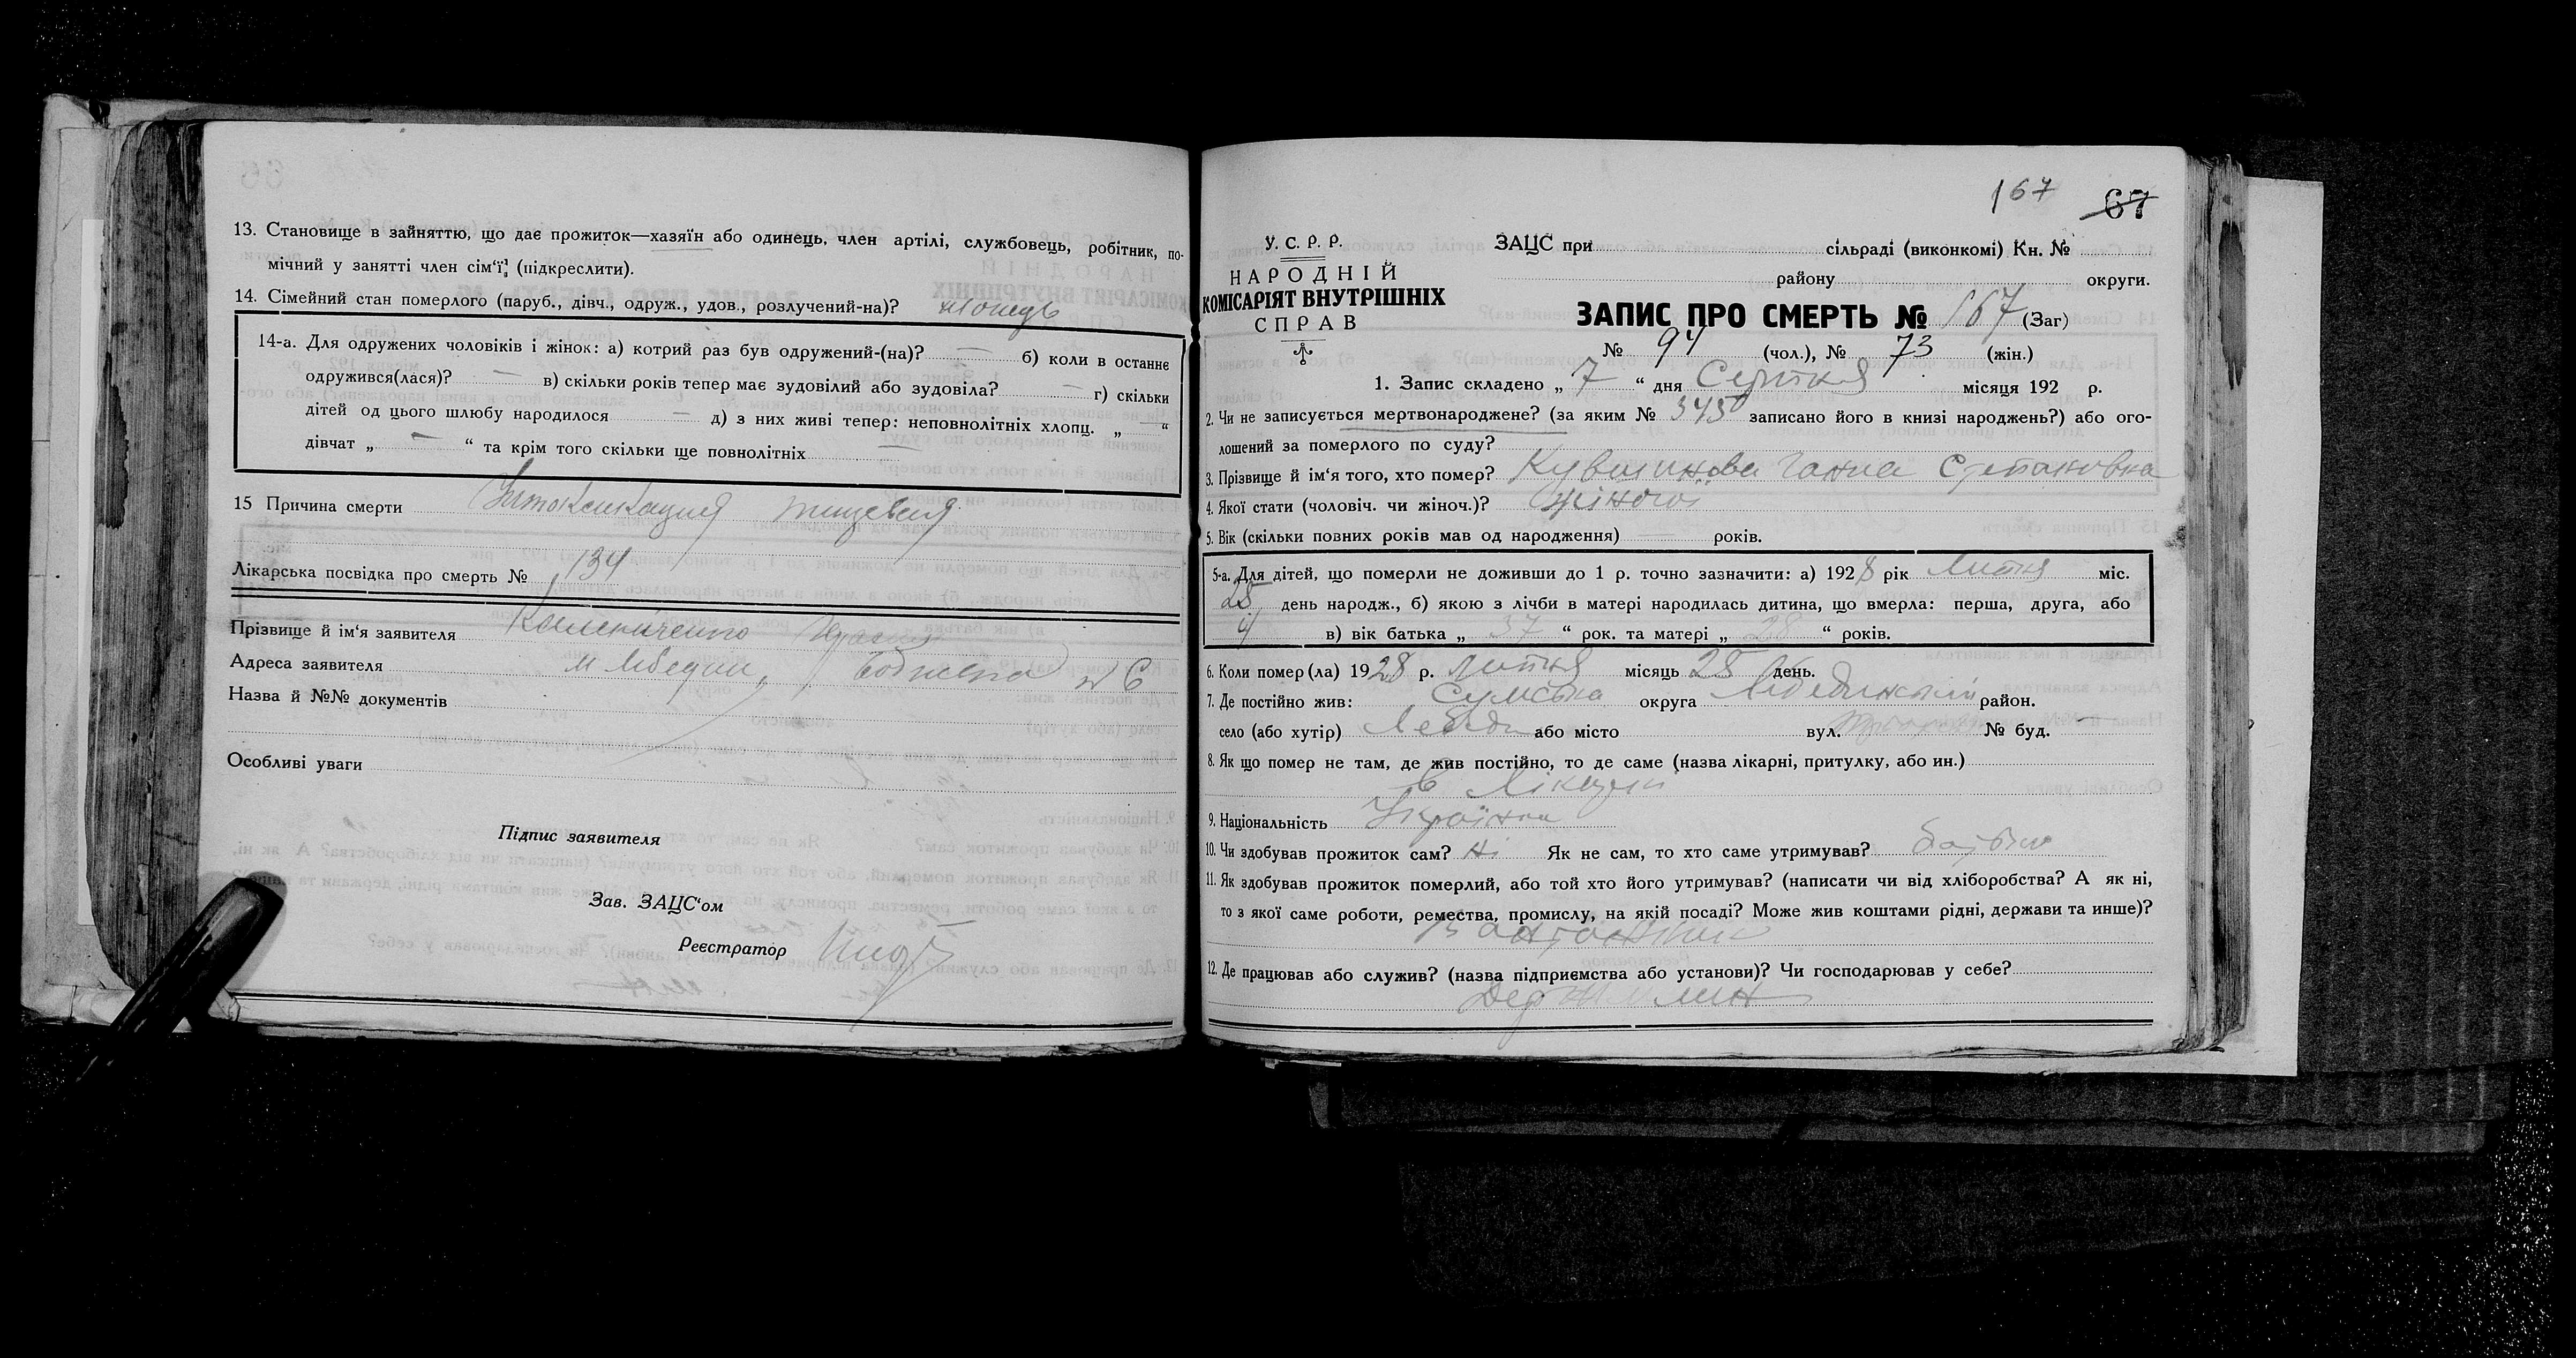 13. Становище в зайняттю, що дає прожиток—хазяїн або одинець, член артілі, службовець, робітник, по-
мічний у занятті член сім'ї (підкреслити).
14. Сімейний стан померлого (паруб., дівч., одруж., удов., розлучений-на)?
14-а. Для одружених чоловіків і жінок: а) котрий раз був одружений-(на)? — б) коли в останнє
одружився(лася)? — в) скільки років тепер має зудовілий або зудовіла? — г) скільки
дітей од цього шлюбу народилося — д) з них живі тепер: неповнолітніх хлопц. „ — “
дівчат „ — “ та крім того скільки ще повнолітніх —
15 Причина смерти Интоксикация пищевая
Лікарська посвідка про смерть № 134
Прізвище й ім'я заявителя
Адреса заявителя м Лебедин, № 6
Назва й №№ документів
Особливі уваги
Підпис заявителя
Зав. ЗАЦС'ом
Реєстратор
167 67
У. С. Р. Р.
НАРОДНІЙ
КОМІСАРІЯТ ВНУТРІШНІХ
СПРАВ
ЗАЦС при сільраді (виконкомі) Кн. №
району округи.
ЗАПИС ПРО СМЕРТЬ № 167 (Заг)
№ 94 (чол.), № 73 (жін.)
1. Запис складено „ 7 “ дня Серпня місяця 192 р.
2. Чи не записується мертвонароджене? (за яким № 345 записано його в книзі народжень?) або ого-
лошений за померлого по суду?
3. Прізвище й ім'я того, хто помер? Кувшинова Ганна Степановна
4. Якої стати (чоловіч. чи жіноч.)? жіночої
5. Вік (скільки повних років мав од народження) — років.
5-а. Для дітей, що померли не доживши до 1 р. точно зазначити: а) 1928 рік Липня міс.
25 день народж., б) якою з лічби в матері народилась дитина, що вмерла: перша, друга, або
4 в) вік батька „ 37 “ рок. та матері „ 28 “ років.
6. Коли помер(ла) 1928 р. Липня місяць 28 день.
7. Де постійно жив: Сумська округа Лебединський район.
село (або хутір) Лебедин або місто вул. № буд. —
8. Як що помер не там, де жив постійно, то де саме (назва лікарні, притулку, або ин.)
в Лікарні
9. Національність Українка
10. Чи здобував прожиток сам? Ні Як не сам, то хто саме утримував? батько
11. Як здобував прожиток померлий, або той хто його утримував? (написати чи від хліборобства? А як ні,
то з якої саме роботи, ремества, промислу, на якій посаді? Може жив коштами рідні, держави та инше)?
12. Де працював або служив? (назва підприємства або установи)? Чи господарював у себе?